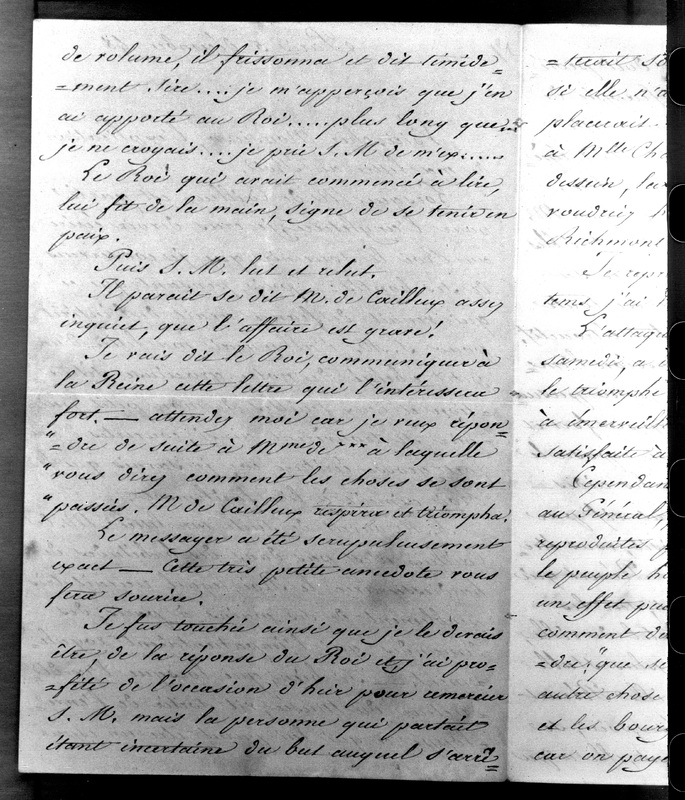 de volume, il frissonna et dit timide=
=ment Sire.... je m'apperçois que j'en
ai apporté au Roi..... plus long que
je ne croyais.... je prie S. M de m'ex.....
Le Roi qui avait commencé à lire,
lui fit de la main, signe de se tenir en
paix.
Puis S. M. lut et relut.
Il parait se dit M. de Cailleux assez
inquiet, que l'affaire est grave!
Je vais dit le Roi, communiquer à
la Reine cette lettre qui l'intéressera
fort. — attendez moi car je veux répon=
"=dre de suite à Mme de *** à laquelle
"vous direz comment les choses se sont
"passées. M de Cailleux respira et triompha.
Le messager a été scrupuleusement
exact — Cette très petite anecdote vous
fera sourire.
Je fus touchée ainsi que je le devais
être, de la réponse du Roi et j'ai pro=
=fité de l'occasion d'hier pour remercier
S. M. mais la personne qui partait
étant incertaine du but auquel s'arrê=
=terait
si elle n'a
placerait
à Mlle Cho
dessein, la
voudriez
Richmont
Je repr
tems j'ai
L'attaqu
samedi, a
le triomphe
à émerveill
satisfaite à
Cependan
au Général,
reproduites p
le peuple h
un effet
comment de
=dre, "que
autre chose
et les bour
car on paye